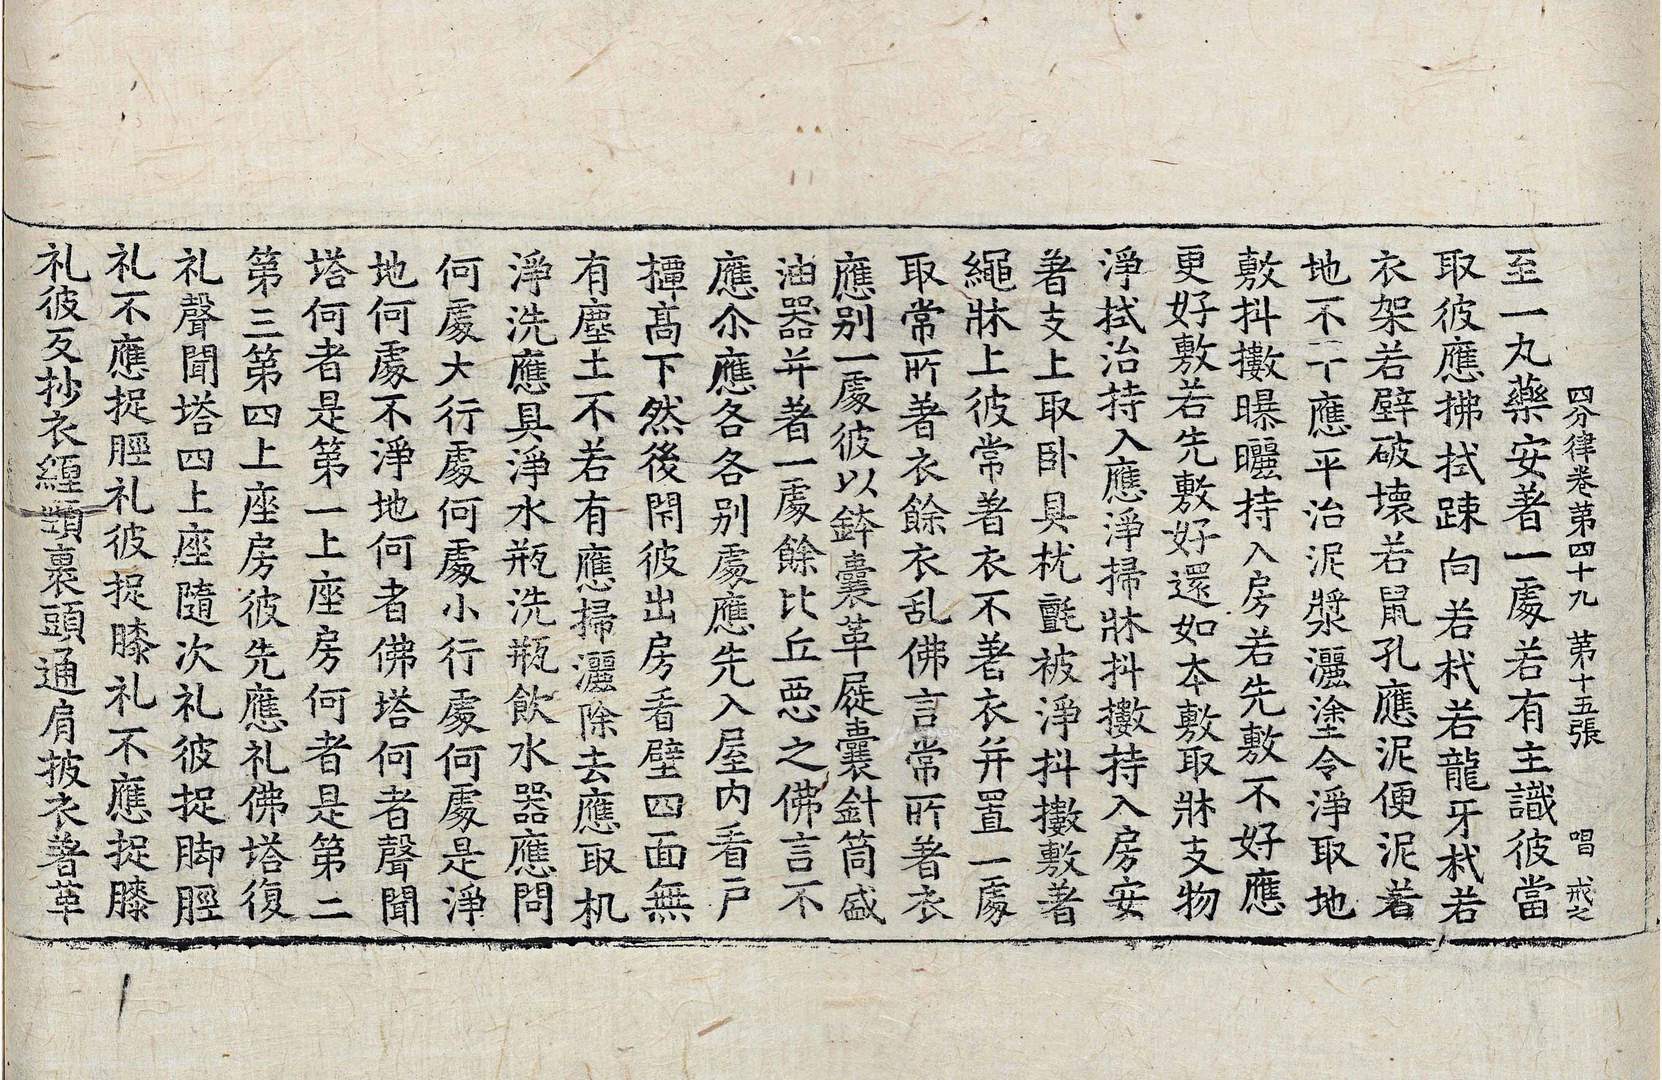 四分律卷第四十九 第十五張 唱 戒之
至一丸藥安著一處若有主識彼當
取彼應拂拭踈向若杙若龍牙杙若
衣架若壁破壞若鼠孔應泥便泥若
地不平應平治泥漿灑塗令淨取地
敷抖擻曝曬持入房若先敷不好應
更好敷若先敷好還如本敷取牀支物
淨拭治持入應淨掃牀抖擻持入房安
著支上取卧具枕氈被淨抖擻敷著
繩牀上彼常著衣不著衣并置一處
取常所著衣餘衣乱佛言常所著衣
應別一處彼以鉢囊革屣囊針筒盛
油器并著一處餘比丘惡之佛言不
應尒應各各別處應先入屋内看戶
撢髙下然後閇彼出房看壁四面無
有塵土不若有應掃灑除去應取机
淨洗應具淨水瓶洗瓶飲水器應問
何處大行處何處小行處何處是淨
地何處不淨地何者佛塔何者聲聞
塔何者是第一上座房何者是第二
第三第四上座房彼先應礼佛塔復
礼聲聞塔四上座隨次礼彼捉脚脛
礼不應捉脛礼彼捉膝礼不應捉膝
礼彼反抄衣纏頸裹頭通肩披衣著革